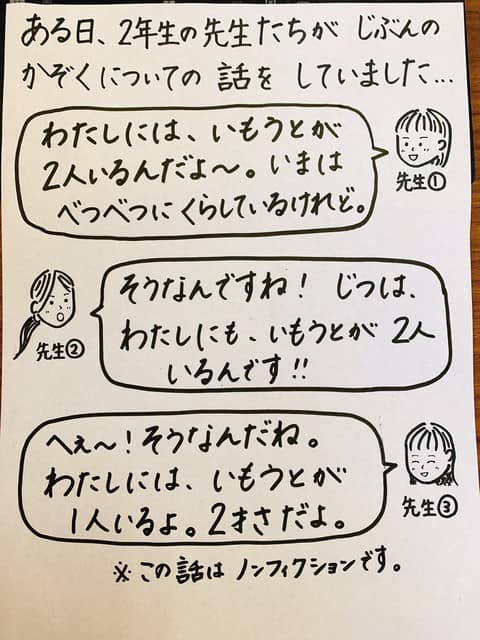 ある日、2年生の先生たちが じぶんの
かぞくについての 話を していました…
わたしには、いもうとが
2人いるんだよ〜。いまは
べつべつにくらしているけれど。
先生①
そうなんですね! じつは、
わたしにも、いもうとが 2人
いるんです!!
先生②
へぇ〜!そうなんだね。
わたしには、いもうとが
1人いるよ。2才さだよ。
先生③
※この話は ノンフィクションです。